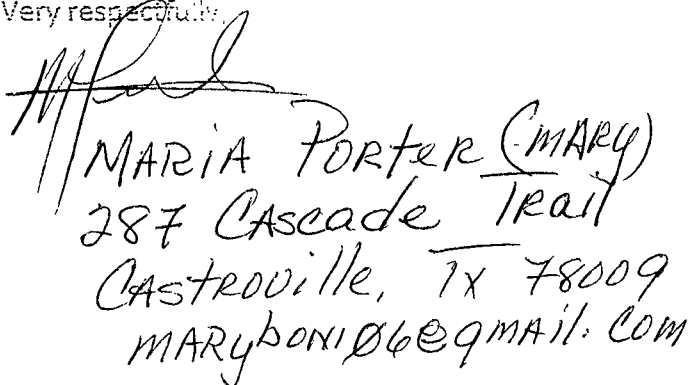 Very respectfully,
MARIA PORTER (MARY)
287 CASCADE TRAIL
CASTROVILLE, TX 78009
maryboni06@gmail.com